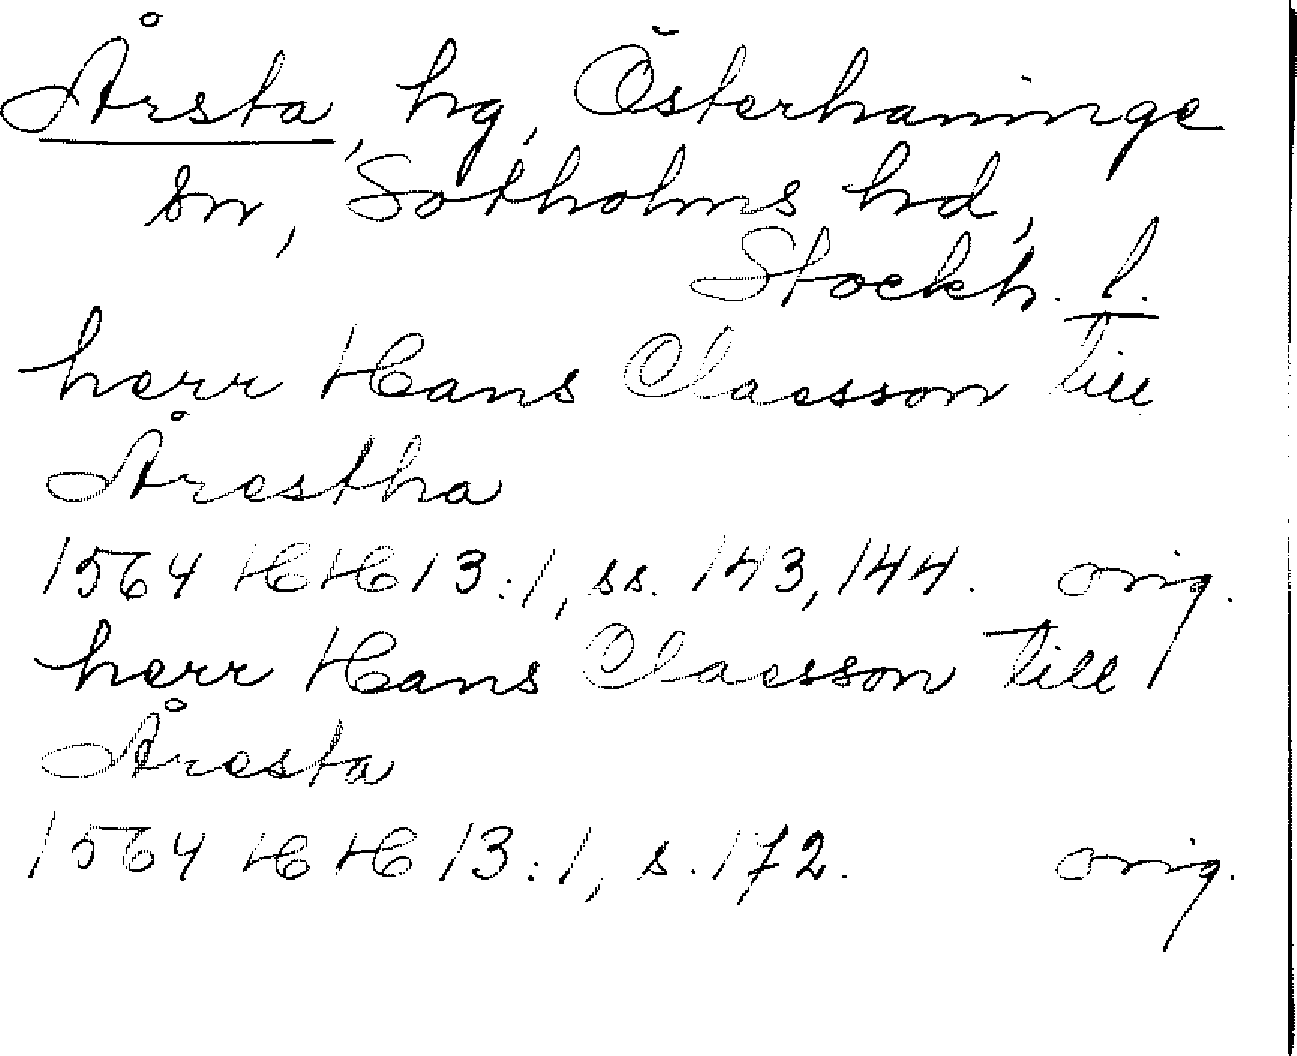 Årsta, hg, Österhaninge
sn, Sotholms hd,
Stockh. l.
herr Hans Claesson till
Årestha
1564 HH 13:1, ss. 143, 144. orig.
herr Hans Claesson till
Åresta
1564 HH 13:1, s. 172. orig.